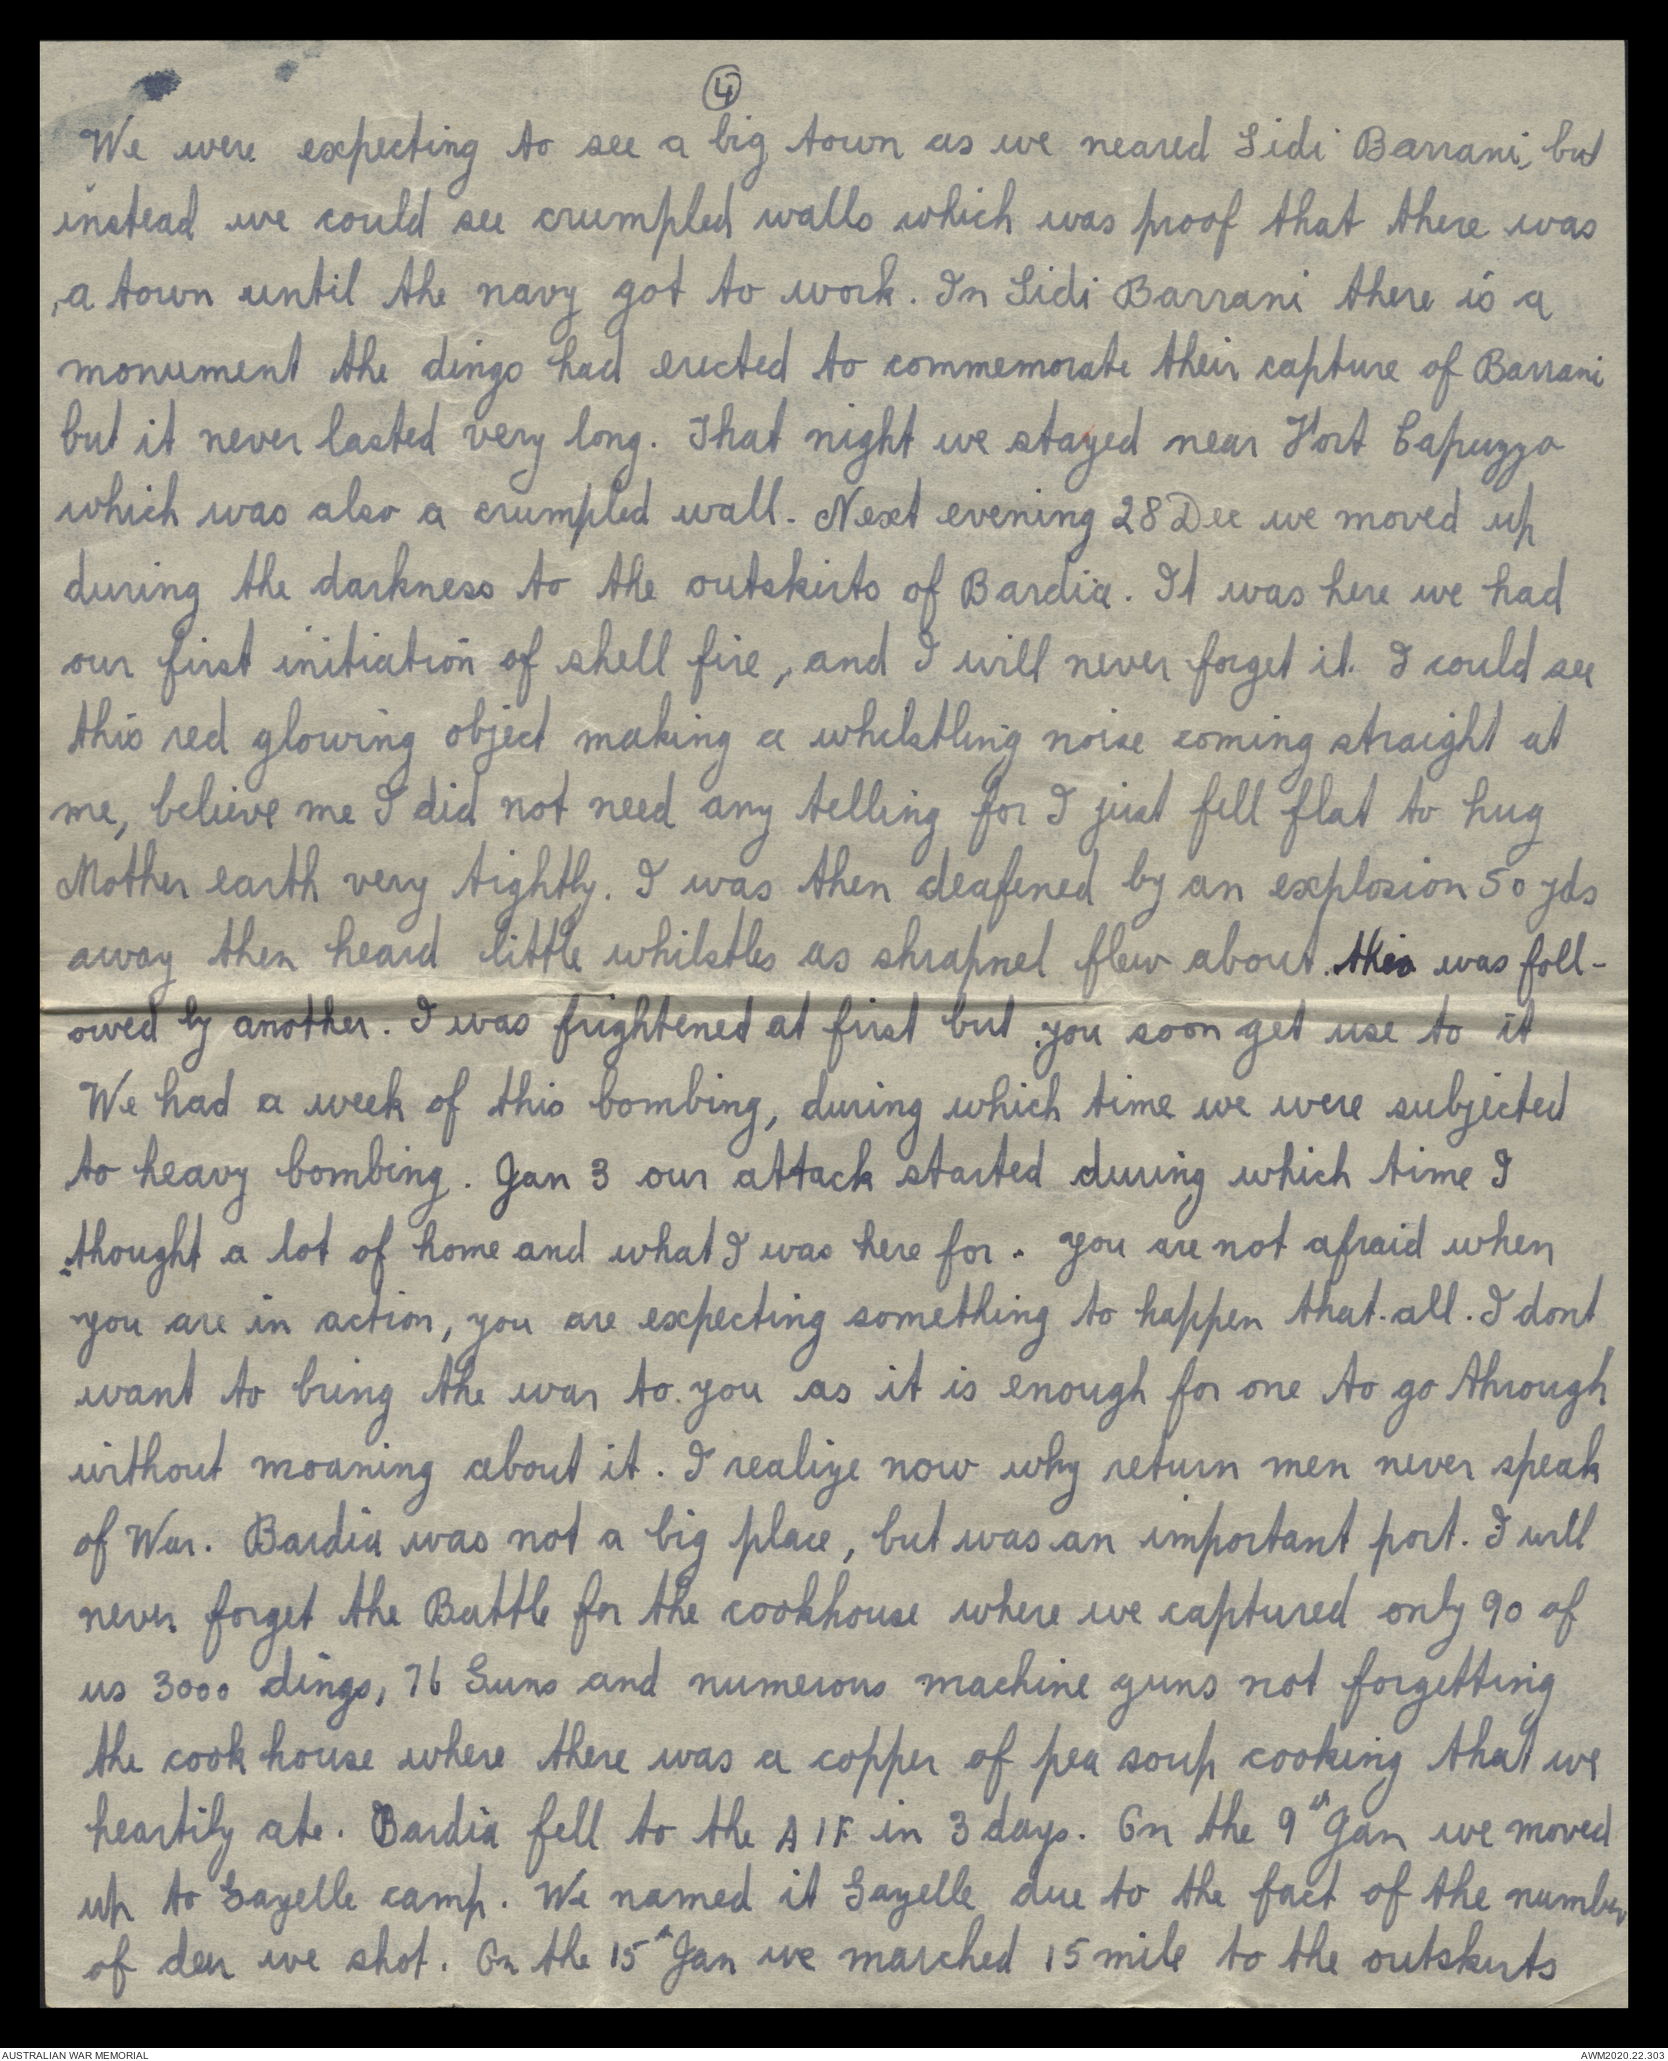 4
We were expecting to see a big town as we neared Sidi Barrani, but
instead we could see crumpled walls which was proof that there was
a town until the navy got to work. In Sidi Barrani there is a
monument the dingo had erected to commemorate their capture of Barrani
but it never lasted very long. That night we stayed near Fort Capuzzo
which was also a crumpled wall. Next evening 28 Dec we moved up
during the darkness to the outskirts of Bardia. It was here we had
our first initiation of shell fire, and I will never forget it. I could see
this red glowing object making a whilstling noise coming straight at
me, believe me I did not need any telling for I just fell flat to hug
Mother earth very tightly. I was then deafened by an explosion 50 yds
away then heard little whilstles as shrapnel flew about. this was foll-
owed by another. I was frightened at first but you soon get use to it
We had a week of this bombing, during which time we were subjected
to heavy bombing. Jan 3 our attack started during which time I
thought a lot of home and what I was here for. you are not afraid when
you are in action, you are expecting something to happen that.all. I dont
want to bring the war to you as it is enough for one to go through
without moaning about it. I realize now why return men never speak
of War. Bardia was not a big place, but was an important port. I will
never forget the Battle for the cookhouse where we captured only 90 of
us 3000 dings, 76 Guns and numerous machine guns not forgetting
the cook house where there was a copper of pea soup cooking that we
heartily ate. Bardia fell to the AIF in 3 days. On the 9th Jan we moved
up to Gazelle camp. We named it Gazelle due to the fact of the number
of deer we shot. On the 15th Jan we marched 15 mile to the outskirts
AUSTRALIAN WAR MEMORIAL
AWM2020.22.303